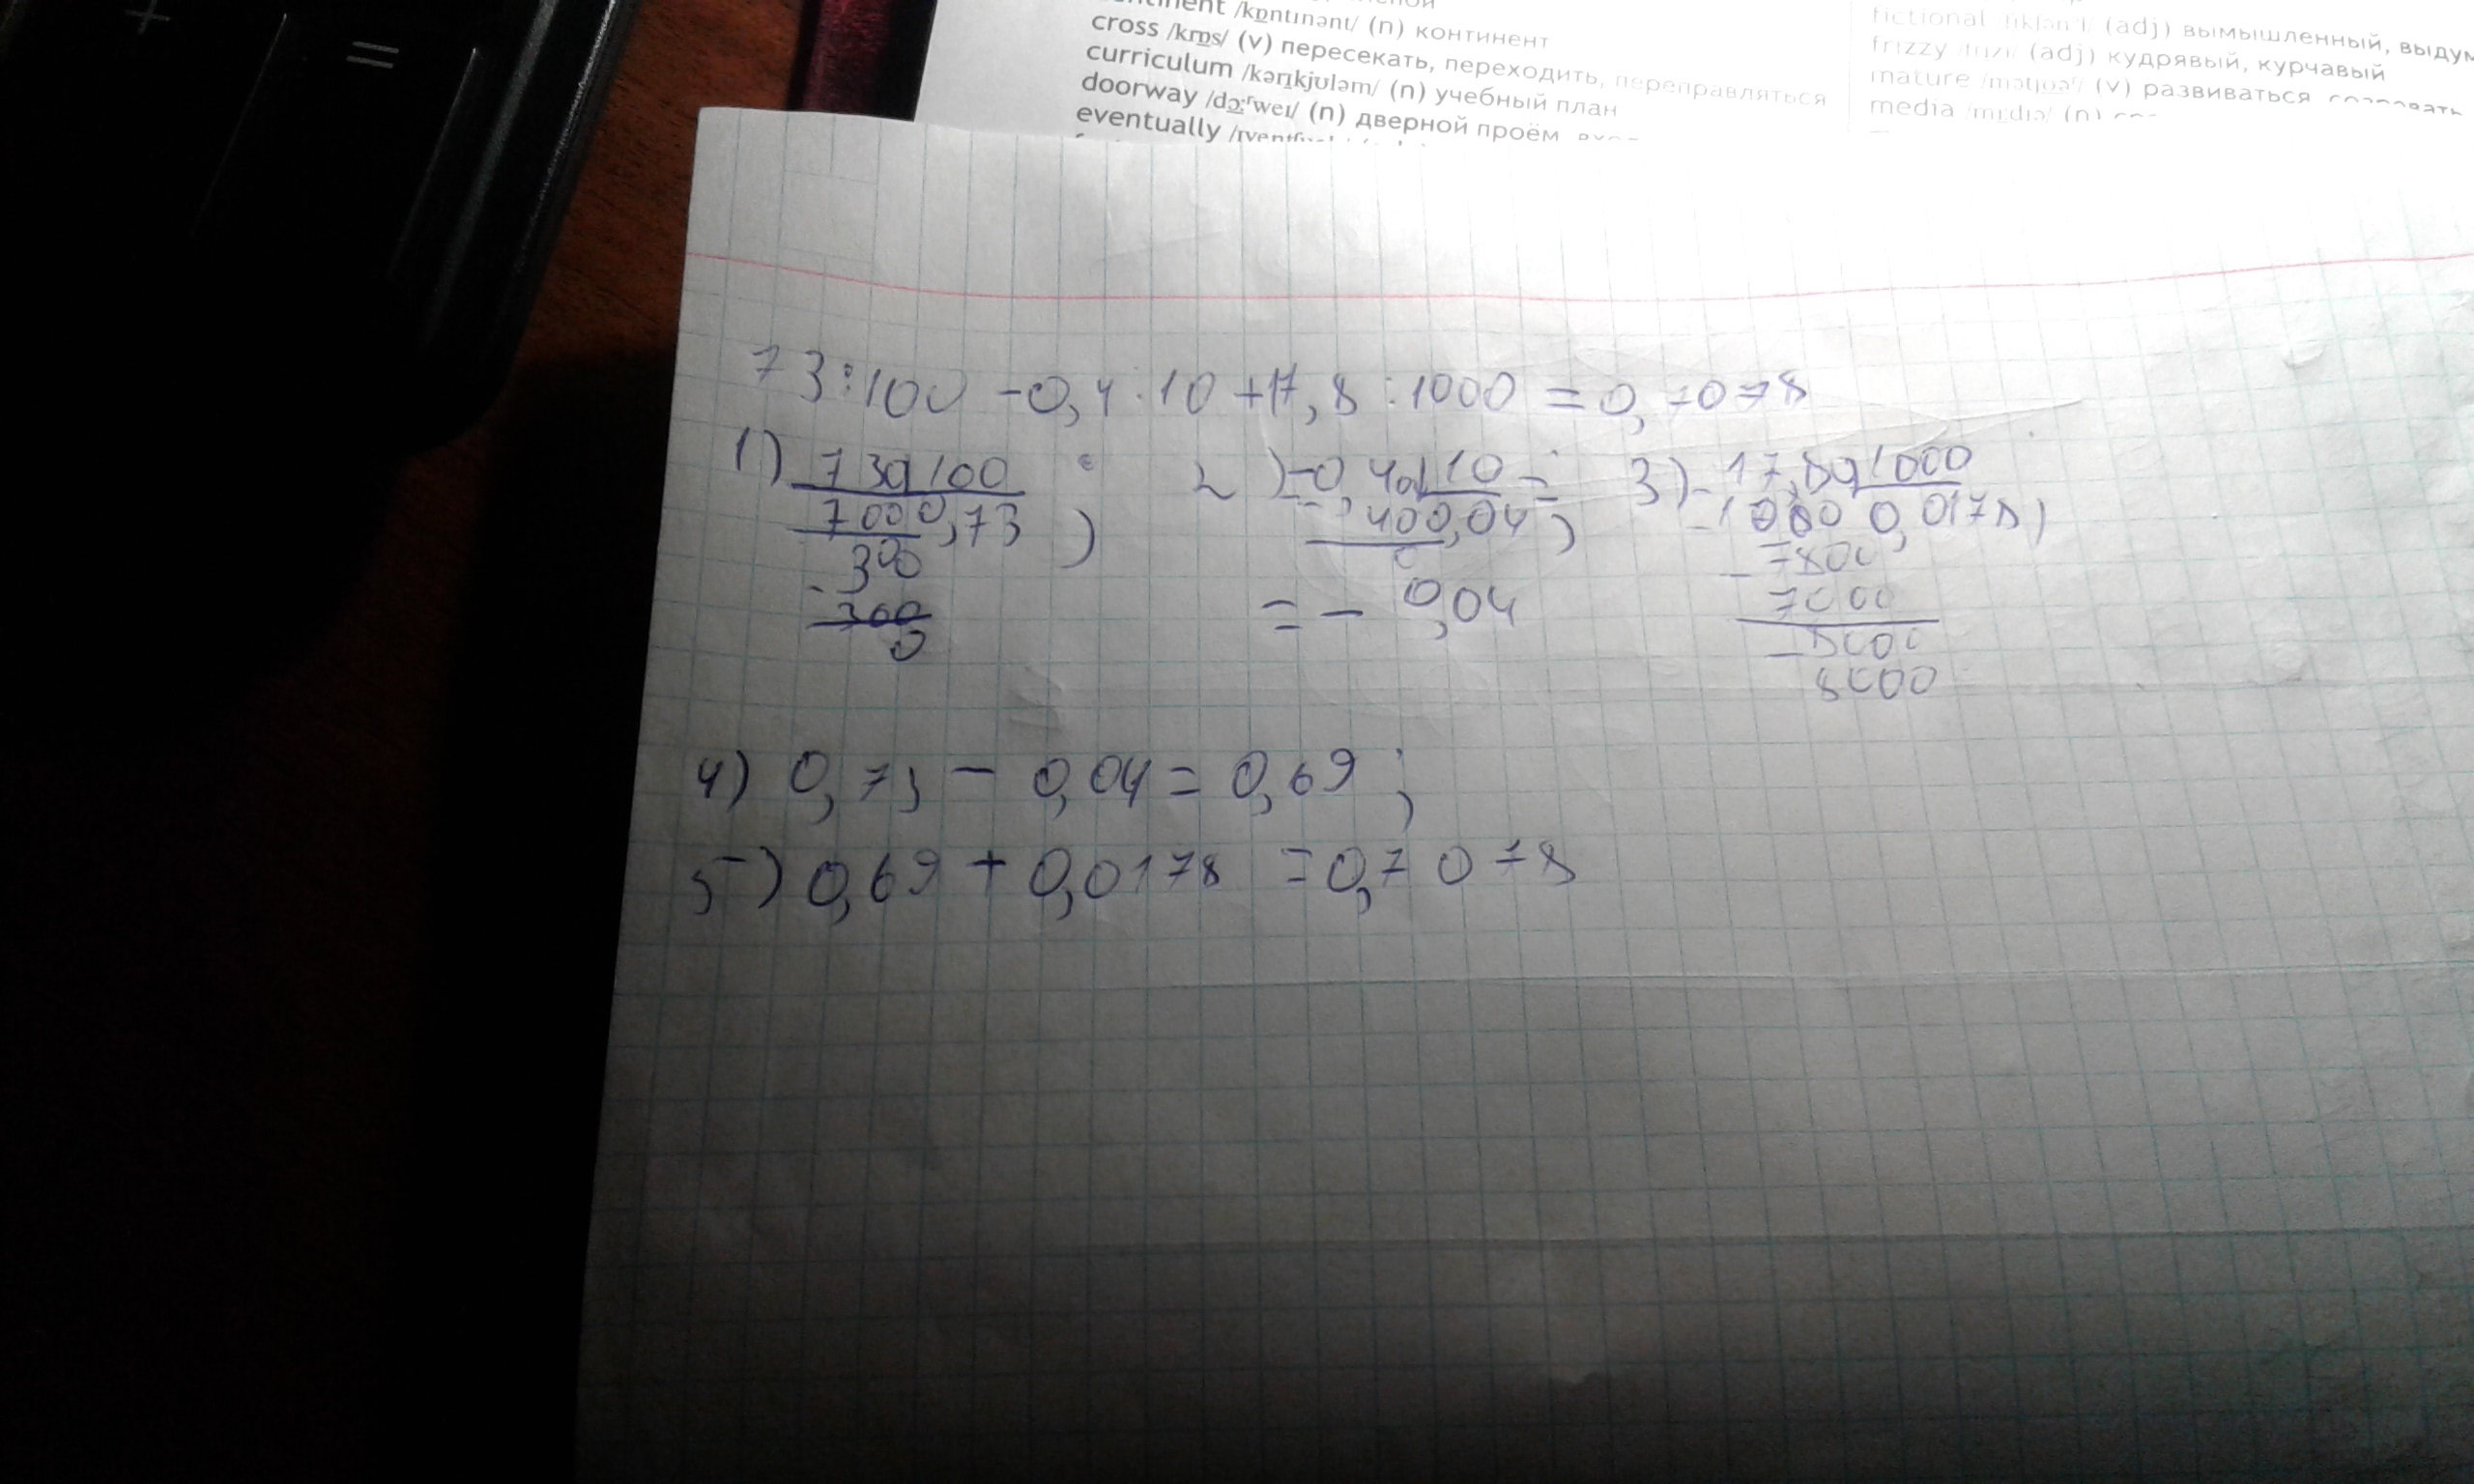 +
=
continent /kɒntɪnənt/ (n) континент
cross /krɒs/ (v) пересекать, переходить, переправляться
curriculum /kərɪkjʊləm/ (n) учебный план
doorway /dɔːʳweɪ/ (n) дверной проём
eventually
fictional /fɪkʃənᵊl/ (adj) вымышленный,
frizzy /frɪzi/ (adj) кудрявый, курчавый
mature /mətjʊəʳ/ (v) развиваться
media /miːdiə/ (n)
73:100 -0,4:10 +17,8:1000 = 0,7078
1) 730 100
7000,73
300
- 300
0
2) -0,40 10 =
400,04;
0
= - 0,04
3) - 17,80 1000
- 1000 0,0178)
- 7800
7000
- 8000
8000
4) 0,73 - 0,04 = 0,69;
5) 0,69 + 0,0178 = 0,7078